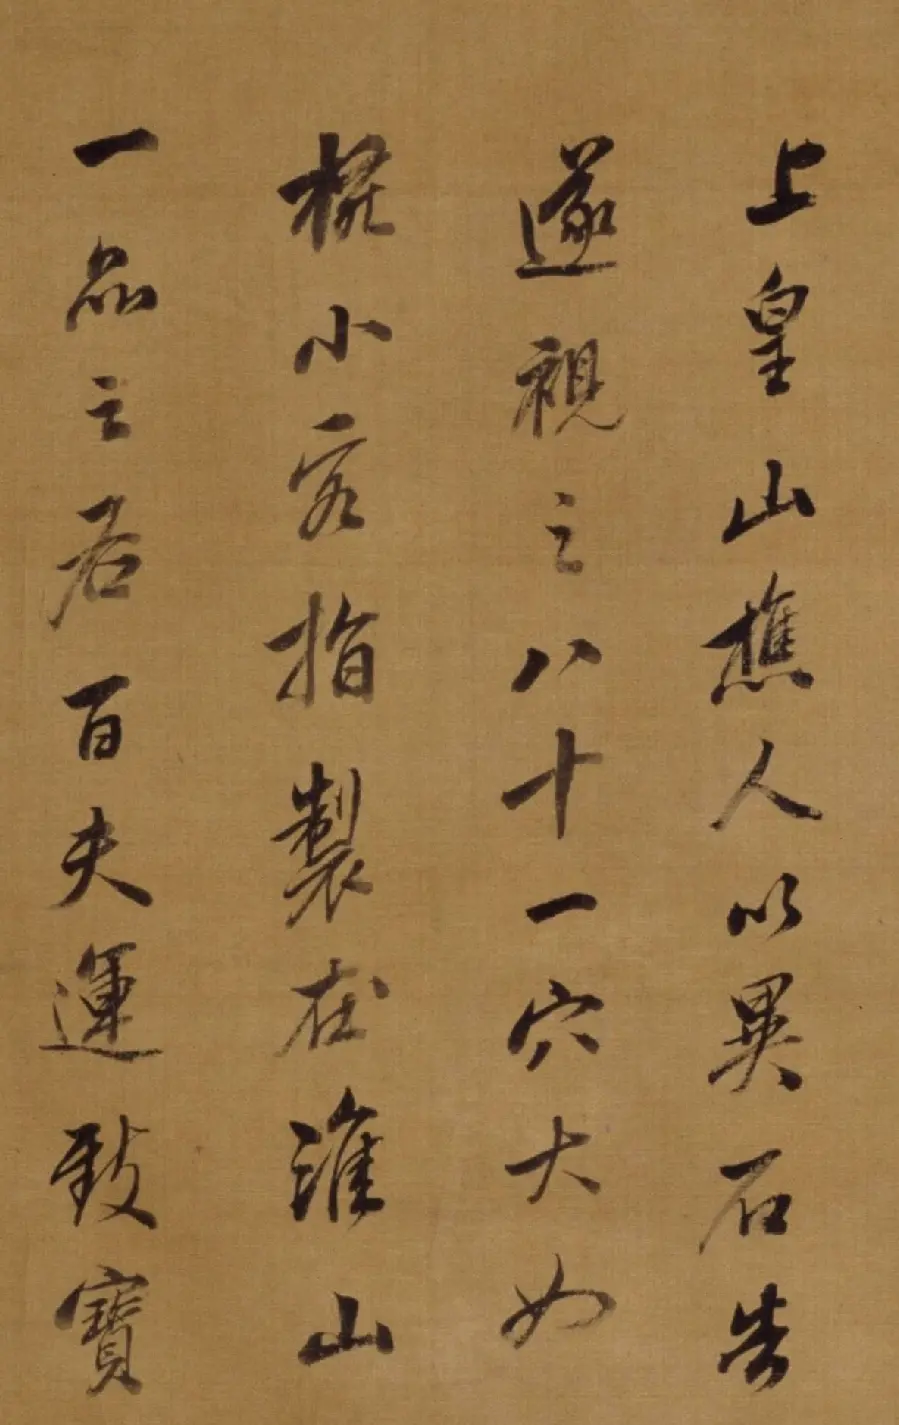 上皇山樵人以異石告
遂視之八十一穴大如
椀小容指製在淮山
一品之右百夫運致寶